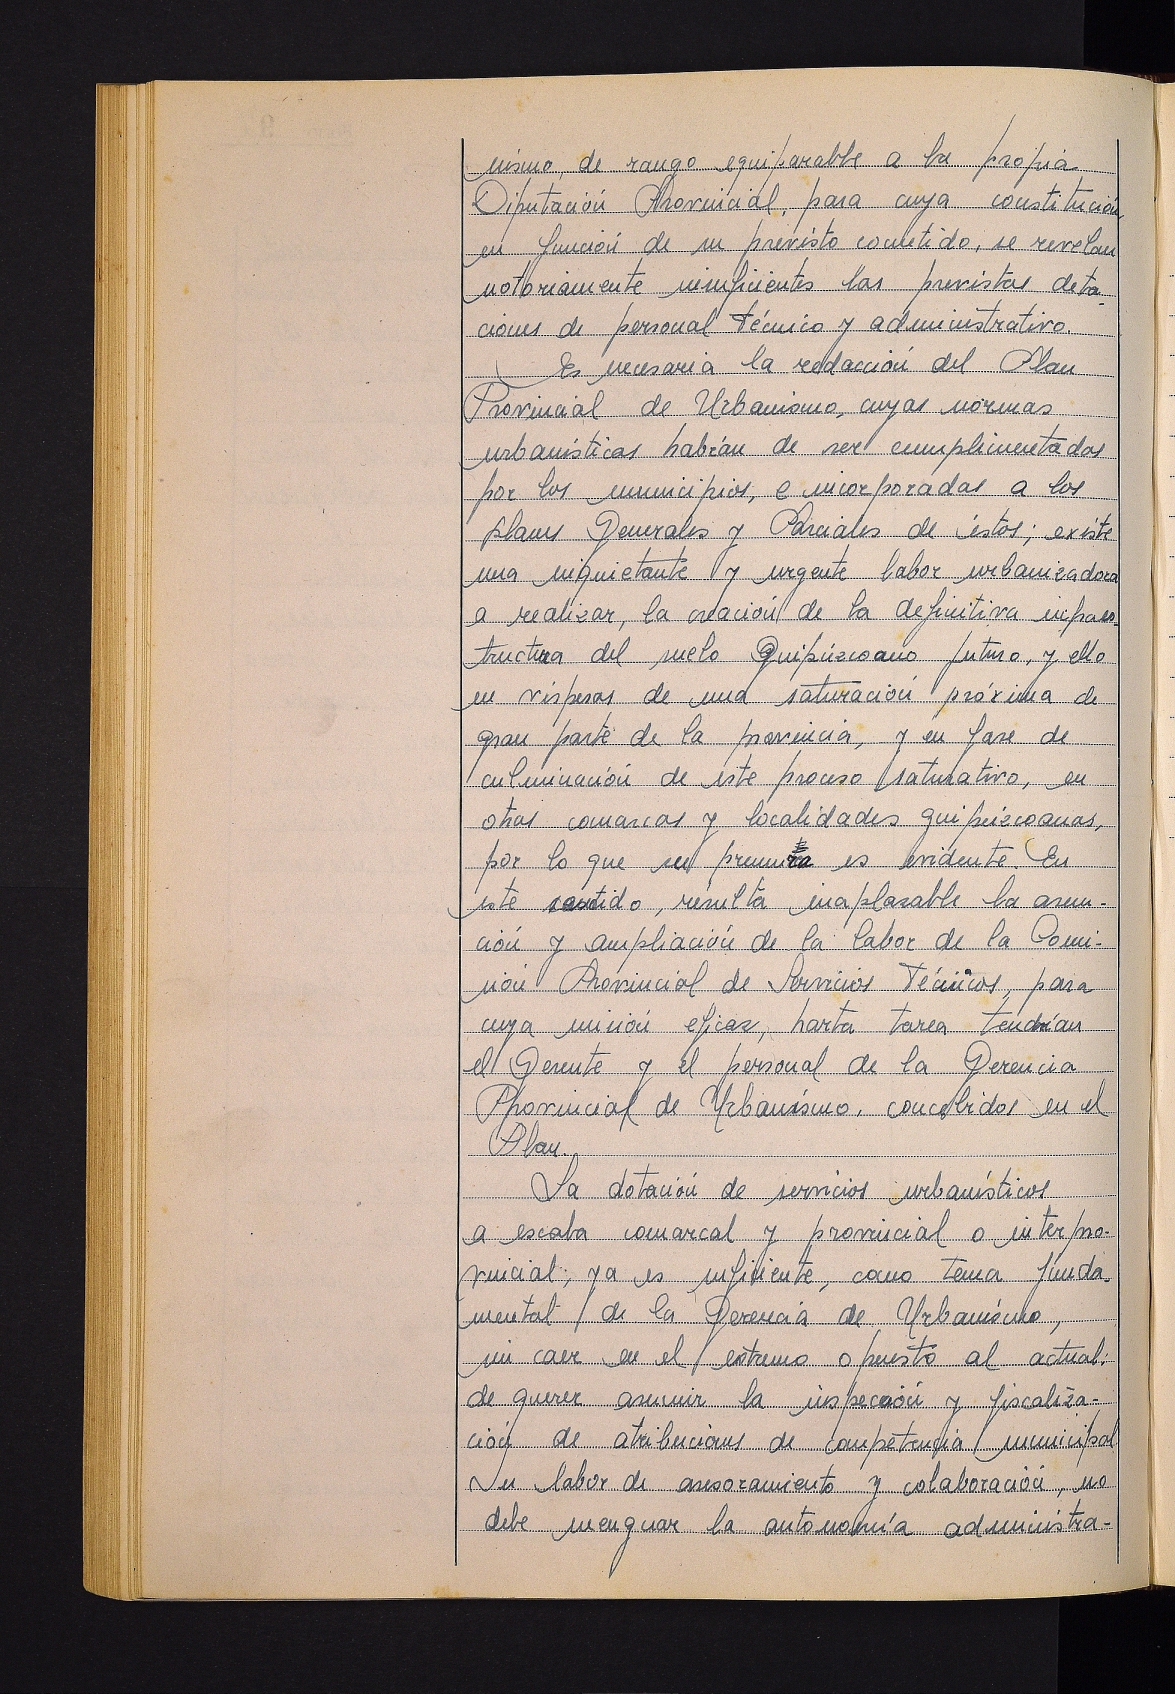 nismo, de rango equiparable a la propia
Diputación Provincial, para cuya constitución
en función de su previsto cometido, se revelan
notoriamente insuficientes las previstas dota-
ciones de personal técnico y administrativo.
Es necesaria la redacción del Plan
Provincial de Urbanismo, cuyas normas
urbanísticas habrán de ser cumplimentadas
por los municipios, e incorporadas a los
planes Generales y Parciales de éstos; existe
una inquietante y urgente labor urbanizadora
a realizar, la creación de la definitiva infraes-
tructura del suelo Guipúzcoano futuro, y ello
en vísperas de una saturación próxima de
gran parte de la provincia, y en fase de
culminación de este proceso saturativo, en
otras comarcas y localidades guipúzcoanas,
por lo que su premura es evidente. En
este sentido, resulta inaplazable la asun-
ción y ampliación de la labor de la Comi-
sión Provincial de Servicios Técnicos, para
cuya misión eficaz, harta tarea tendrían
el Gerente y el personal de la Gerencia
Provincial de Urbanismo, concebidos en el
Plan.
La dotación de servicios urbanísticos
a escala comarcal y provincial o interpro-
vincial, ya es suficiente, como tema funda-
mental de la Gerencia de Urbanismo,
sin caer en el extremo opuesto al actual:
de querer asumir la inspección y fiscaliza-
ción de atribuciones de competencia municipal
Su labor de asesoramiento y colaboración, no
debe menguar la autonomía administra-